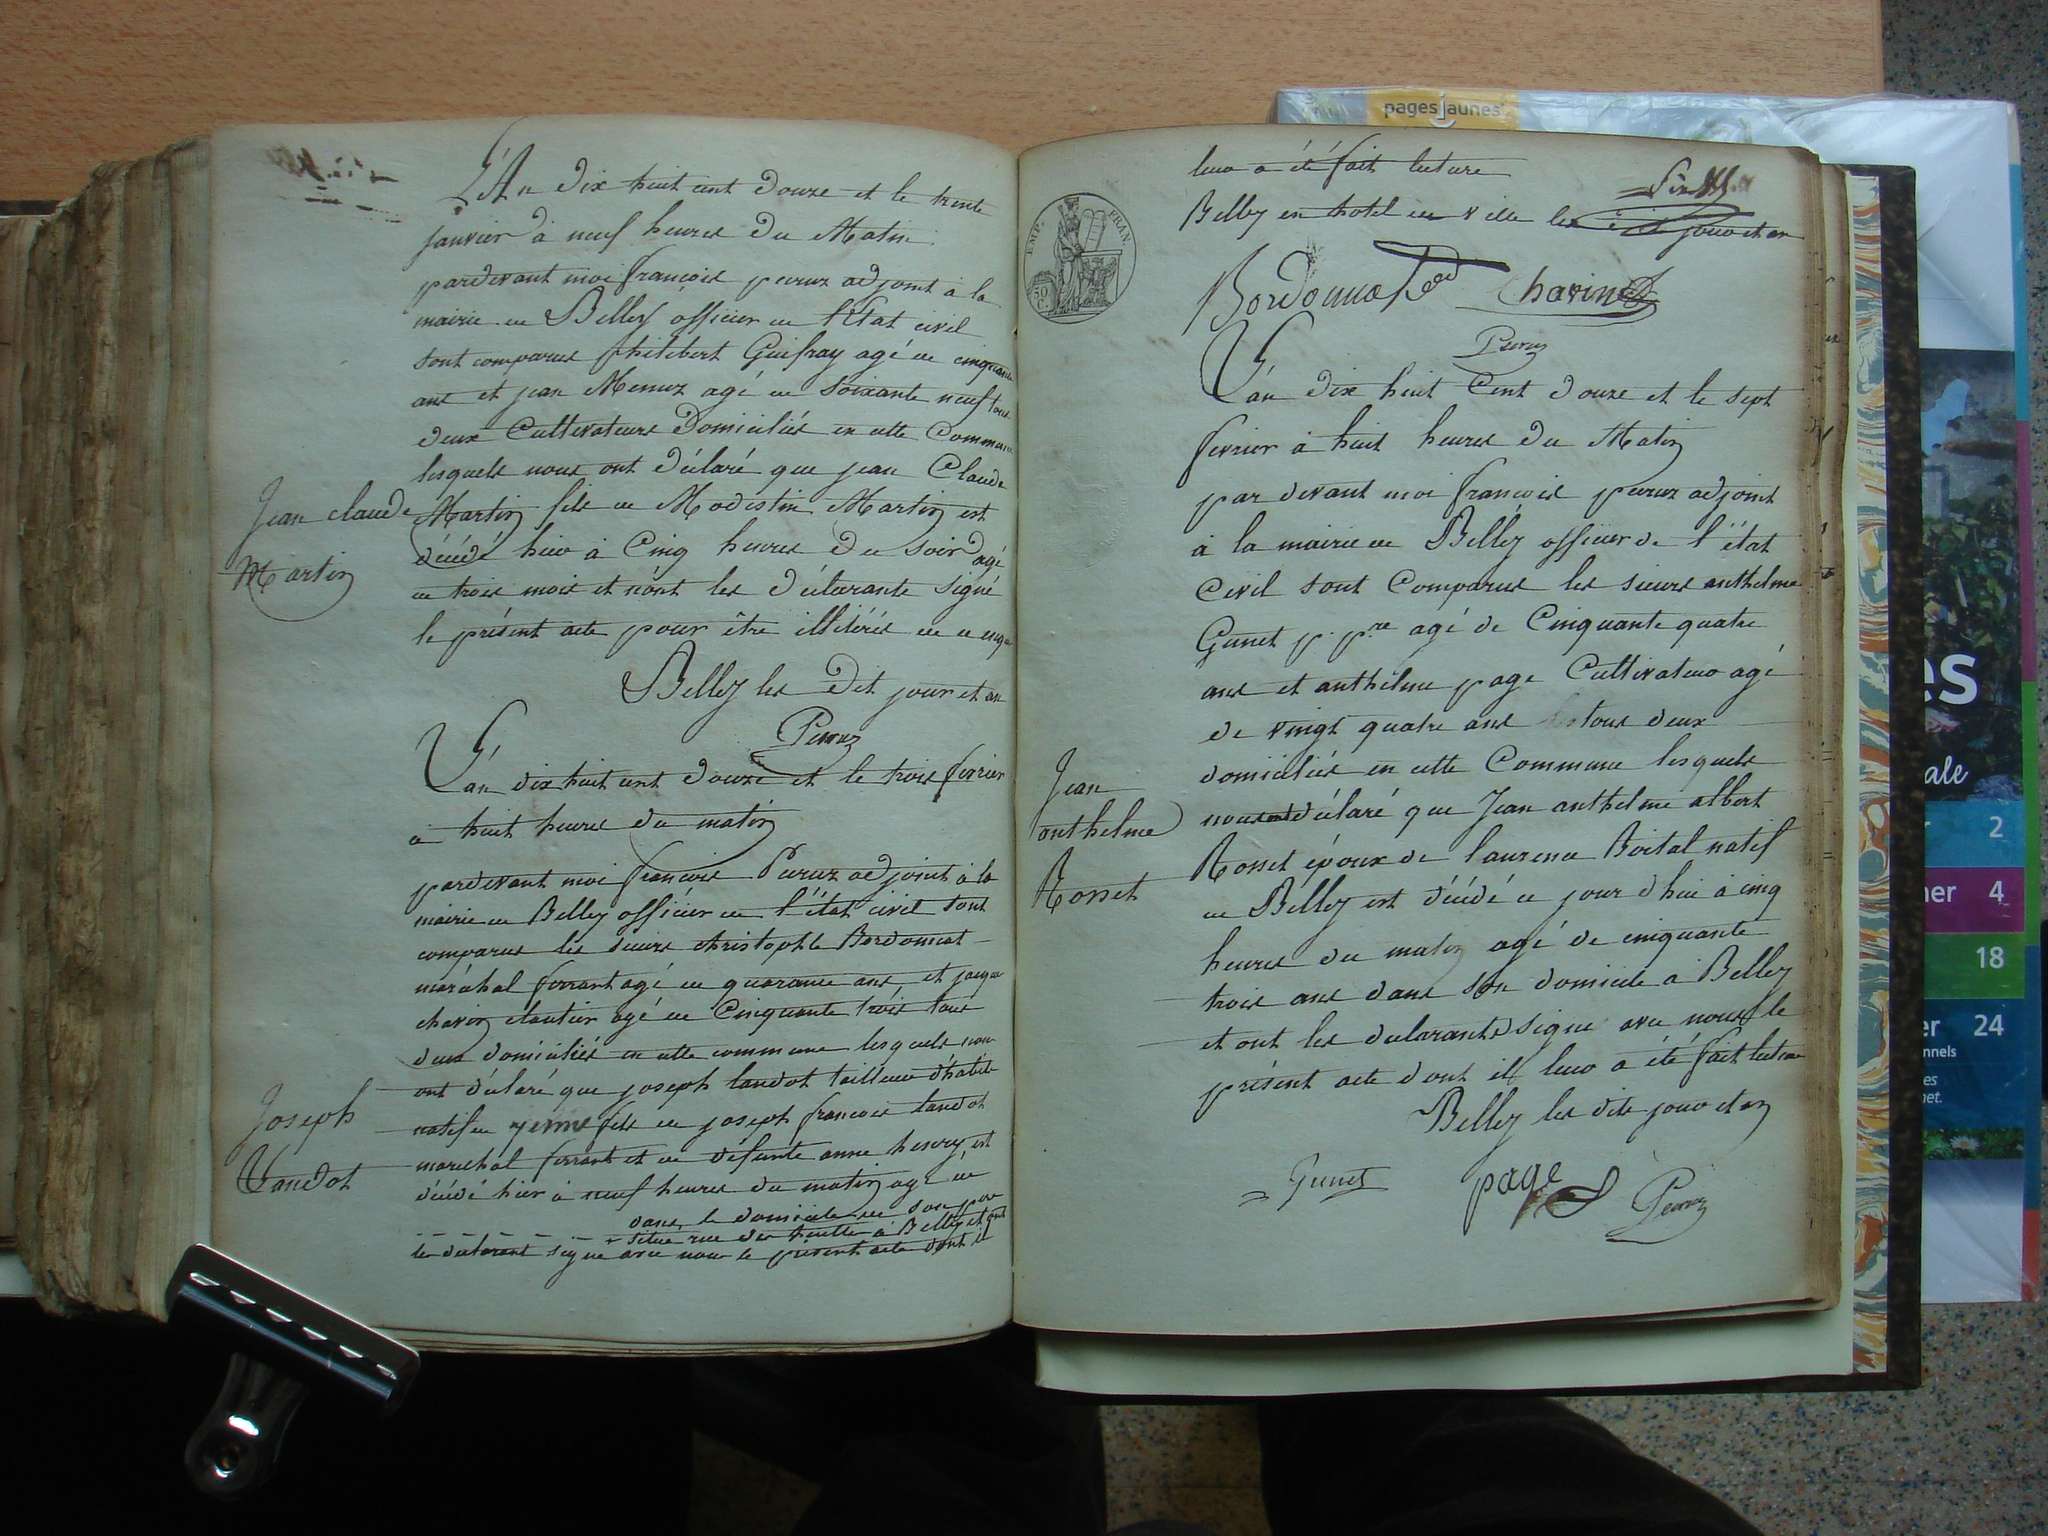 L'An dix huit cent douze et le trente
janvier à neuf heures du Matin
pardevant moi françois peruz adjoint à la
mairie de Belley officier de l'Etat civil
sont comparus philibert Guifray agé de cinquante
ans et jean Memuz agé de soixante neuf tous
deux Cultivateurs Domiciliés en cette Commune
lesquels nous ont déclaré que jean Claude
Jean claude
Martin
Martin fils de Modestin Martin est
décédé hier à Cinq heures du soir agé
de trois mois et n'ont les déclarants signé
le présent acte pour être illitérés de ce enquis
Belley les dit jour et an
Peruz
L'an dix huit cent douze et le trois fevrier
à huit heures du matin
pardevant moi françois Peruz adjoint à la
mairie de Belley officier de l'état civil sont
comparus les sieurs christophle Bordonnat
maréchal ferrant agé de quarante ans, et jacque
chavin cloutier agé de Cinquante trois tous
deux domiciliés en cette commune lesquels nous
ont déclaré que joseph landot tailleur d'habits
Joseph
Landot
natif de yenne fils de joseph françois landot
maréchal ferrant et de défunte anne henry est
décédé hier à neuf heures du matin agé de
dans le domicile de son père
situé rue des à Belley et ont
les déclarant signé avec nous le présent acte dont il
leur a été fait lecture
Belley en hotel de ville les jour et an
EMP. FRAN.
50 C.
Bordonnat Chavin
Peruz
L'an dix huit Cent douze et le sept
fevrier à huit heures du Matin
par devant moi françois peruz adjoint
à la mairie de Belley officier de l'état
Civil sont Comparus les sieurs anthelme
Gunet p. pre agé de Cinquante quatre
ans et anthelme page Cultivateur agé
de vingt quatre ans tous deux
domiciliés en cette Commune lesquels
Jean
anthelme
Rosset
nous ont déclaré que Jean anthelme albert
Rosset époux de laurence Boital natif
de Belley est décédé ce jour d'hui à cinq
heures du matin agé de cinquante
trois ans dans son domicile à Belley
et ont les declarants signé avec nous le
présent acte dont il leur a été fait lecture
Belley les dits jour et an
Gunet page Peruz
pagesjaunes
es
ale
2
ner 4
18
er 24
nnels
es
net.